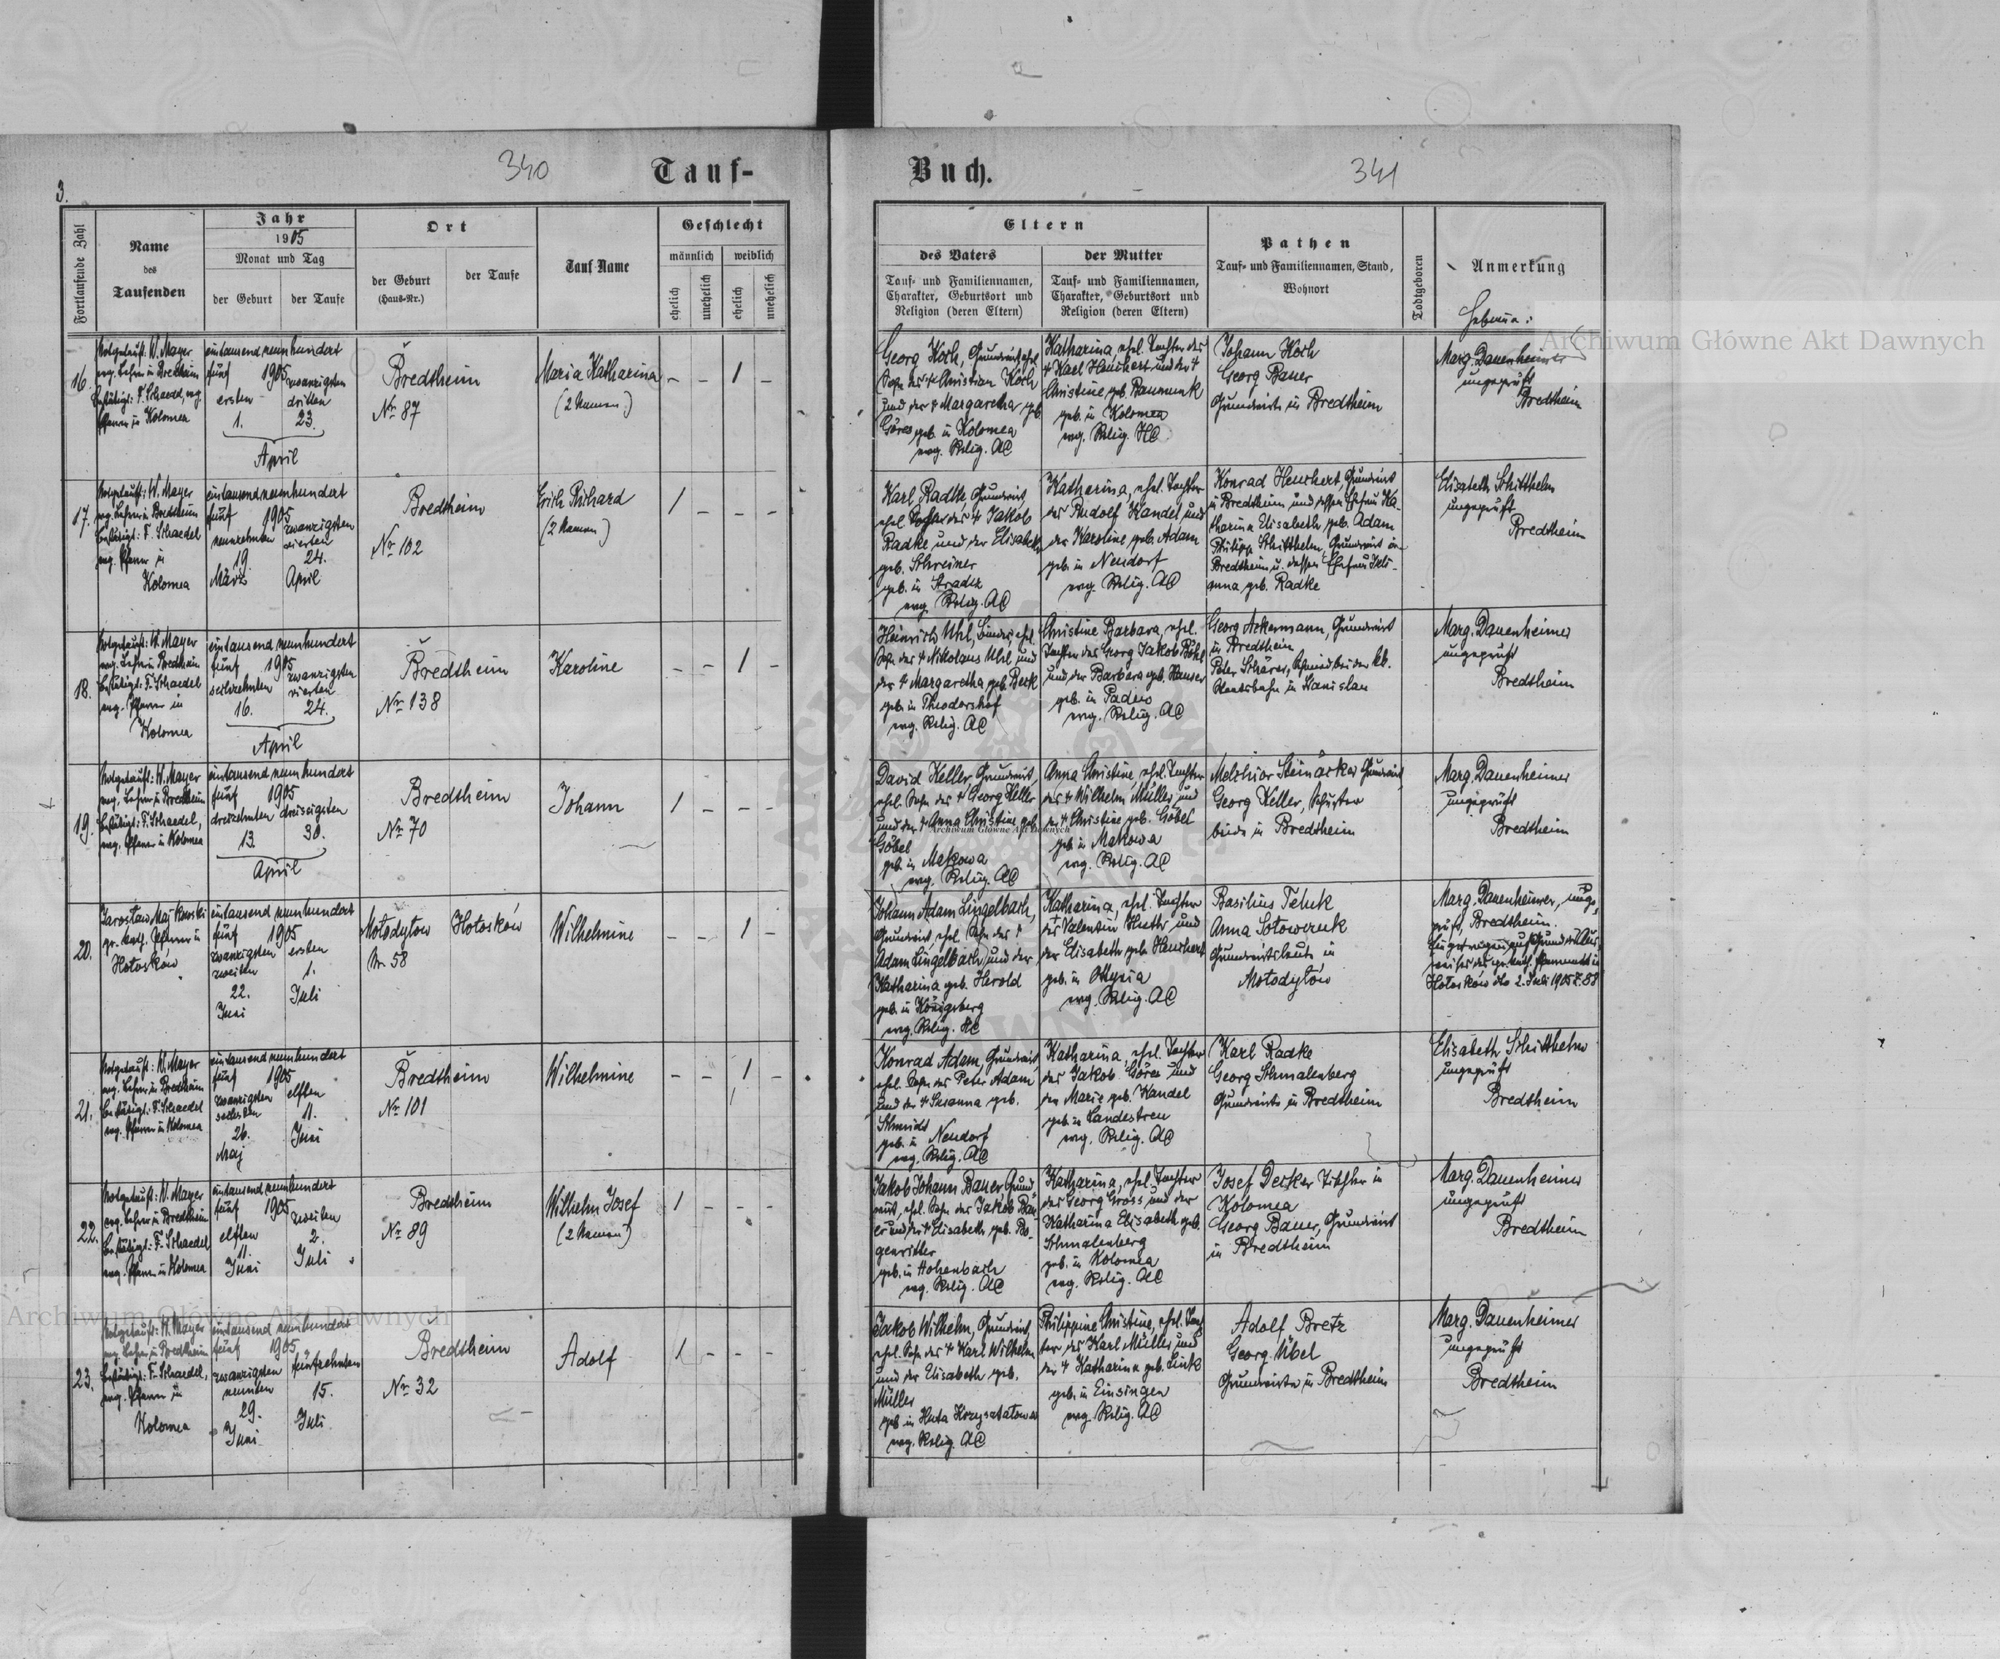 340
Tauf-
3.
Fortlaufende Zahl
Name
des
Taufenden
Jahr
1905
Monat und Tag
der Geburt
der Taufe
Ort
der Geburt
(Haus-Nr.)
der Taufe
Tauf-Name
Geschlecht
männlich
weiblich
ehelich
unehelich
ehelich
unehelich
16.
Notgetauft: W. Mayer
evg. Lehrer in Bredtheim
bestätigt: F. Schaedel, evg.
Pfarrer in Kolomea
eintausendneunhundert
fünf 1905
ersten
zwanzigsten
dritten
1.
23.
April
Bredtheim
Nr. 87
Maria Katharina
(2 Namen)
- - 1 -
17.
Notgetauft: W. Mayer
evg. Lehrer in Bredtheim
bestätigt: F. Schaedel
evg. Pfarrer in
Kolomea
eintausendneunhundert
fünf 1905
neunzehnten
zwanzigsten
vierten
19.
24.
März
April
Bredtheim
Nr. 102
Erich Richard
(2 Namen)
1 - - -
18.
Notgetauft: W. Mayer
evg. Lehrer in Bredtheim
bestätigt: F. Schaedel
evg. Pfarrer in
Kolomea
eintausend neunhundert
fünf 1905
sechzehnten
zwanzigsten
vierten
16.
24.
April
Bredtheim
Nr. 138
Karoline
- - 1 -
19.
Notgetauft: W. Mayer
evg. Lehrer in Bredtheim
bestätigt: F. Schaedel,
evg. Pfarrer in Kolomea
eintausend neunhundert
fünf 1905
dreizehnten dreissigsten
13.
30.
April
Bredtheim
Nr. 70
Johann
1 - - -
20.
Jarosław Majkowski
gr. kath. Pfarrer in
Hołosków
eintausend neunhundert
fünf 1905
zwanzigsten
zweiten
ersten
22.
1.
Juni
Juli
Mołodyłow
Nr. 58
Hołosków
Wilhelmine
- - 1 -
21.
Notgetauft: W. Mayer
evg. Lehrer in Bredtheim
bestätigt: F. Schaedel
evg. Pfarrer in Kolomea
eintausendneunhundert
fünf 1905
zwanzigsten
sechsten
elften
26.
11.
Maj
Juni
Bredtheim
Nr. 101
Wilhelmine
- - 1 -
22.
Notgetauft: W. Mayer
evg. Lehrer in Bredtheim
bestätigt: F. Schaedel
evg. Pfarrer in Kolomea
eintausend neunhundert
fünf 1905
elften
zweiten
11.
2.
Juni
Juli
Bredtheim
Nr. 89
Wilhelm Josef
(2 Namen)
1 - - -
23.
Notgetauft: W. Mayer
evg. Lehrer in Bredtheim
bestätigt: F. Schaedel,
evg. Pfarrer in
Kolomea
eintausend neunhundert
fünf 1905
zwanzigsten
neunten
fünfzehnten
29.
15.
Juni
Juli
Bredtheim
Nr. 32
Adolf
1 - - -
Buch.
341
Eltern
des Vaters
Tauf- und Familiennamen,
Charakter, Geburtsort und
Religion (deren Eltern)
der Mutter
Tauf- und Familiennamen,
Charakter, Geburtsort und
Religion (deren Eltern)
Pathen
Tauf- und Familiennamen, Stand,
Wohnort
Todtgeboren
Anmerkung
Georg Koch, Grundwirt, ehel.
Sohn des † Christian Koch
und der † Margaretha geb.
Göres geb. in Kolomea
evg. Relig. AC
Katharina, ehel. Tochter des
† Karl Heuchert und der †
Christine geb.
geb. in Kolomea
evg. Relig. HC
Johann Koch
Georg Bauer
Grundwirte in Bredtheim
Marg. Dauenheimer
ungeprüft
Bredtheim
Karl Radke Grundwirt,
ehel. Sohn des † Jakob
Radke und der Elisabeth
geb. Schreiner
geb. in
evg. Relig. AC
Katharina, ehel. Tochter
des Rudolf Kandel und
der Karoline geb. Adam
geb. in Neudorf
evg. Relig. AC
Konrad Heuchert, Grundwirt
in Bredtheim und dessen Ehefrau Ka-
tharina Elisabeth geb. Adam
Philipp Schitthelm, Grundwirt in
Bredtheim u. dessen Ehefrau Juli-
anna geb. Radke
Elisabeth Schitthelm
ungeprüft
Bredtheim
Heinrich Uhl, ehel.
Sohn des † Nikolaus Uhl und
der † Margaretha geb. Beck
geb. in Theodorshof
evg. Relig. AC
Christine Barbara, ehel.
Tochter des Georg Jakob
und der Barbara geb.
geb. in
evg. Relig. AC
Georg Ackermann, Grundwirt
in Bredtheim
Peter Schärer, Schmied bei der kk.
Staatsbahn in Stanislau
Marg. Dauenheimer
ungeprüft
Bredtheim
David Keller, Grundwirt,
ehel. Sohn des † Georg Keller
und der † Anna Christine geb.
Göbel
geb. in Makowa
evg. Relig. AC
Anna Christine, ehel. Tochter
des † Wilhelm Müller und
der † Christine geb. Göbel
geb. in Makowa
evg. Relig. AC
Melchior Grundwirt,
Georg Keller, Schuster
beide in Bredtheim
Marg. Dauenheimer
ungeprüft
Bredtheim
Johann Adam Lingelbach,
Grundwirt, ehel. Sohn des †
Adam Lingelbach und der
Katharina geb. Harold
geb. in Königsberg
evg. Relig. HC
Katharina, ehel. Tochter
des Valentin Huth und
der Elisabeth geb. Heuchert
geb. in Ottynia
evg. Relig. AC
Basilius Teluk
Anna Sołowczuk
Grundwirtsleute in
Mołodyłów
Marg. Dauenheimer, unge-
prüft, Bredtheim.
Eingetragen auf Grund
des gr. kath. in
Hołosków dto 2. Juli 1905 Z. 88
Konrad Adam, Grundwirt,
ehel. Sohn des Peter Adam
und der † Susanna geb.
Schmidt
geb. in Neudorf
evg. Relig. AC
Katharina, ehel. Tochter
des Jakob Göres und
der Marie geb. Kandel
geb. in Landestreu
evg. Relig. AC
Karl Radke
Georg Schmalenberg
Grundwirte in Bredtheim
Elisabeth Schitthelm
ungeprüft
Bredtheim
Jakob Johann Bauer Grund-
wirt, ehel. Sohn des Jakob Bau-
er und der † Elisabeth geb. Ro-
genritter
geb. in Hohenbach
evg. Relig. AC
Katharina, ehel. Tochter
des Georg Gross und der
Katharina Elisabeth geb.
Schmalenberg
geb. in Kolomea
evg. Relig. AC
Josef Decker Tischler in
Kolomea
Georg Bauer, Grundwirt
in Bredtheim
Marg. Dauenheimer
ungeprüft
Bredtheim
Jakob Wilhelm, Grundwirt,
ehel. Sohn des † Karl Wilhelm
und der Elisabeth geb.
Müller
geb. in Huta Krzyształowa
evg. Relig. AC
Philippine Christine, ehel. Toch-
ter des Karl Müller und
der † Katharina geb. Link
geb. in Einsingen
evg. Relig. AC
Adolf Bretz
Georg Übel
Grundwirte in Bredtheim
Marg. Dauenheimer
ungeprüft
Bredtheim
Archiwum Główne Akt Dawnych
Archiwum Główne Akt Dawnych
Archiwum Główne Akt Dawnych